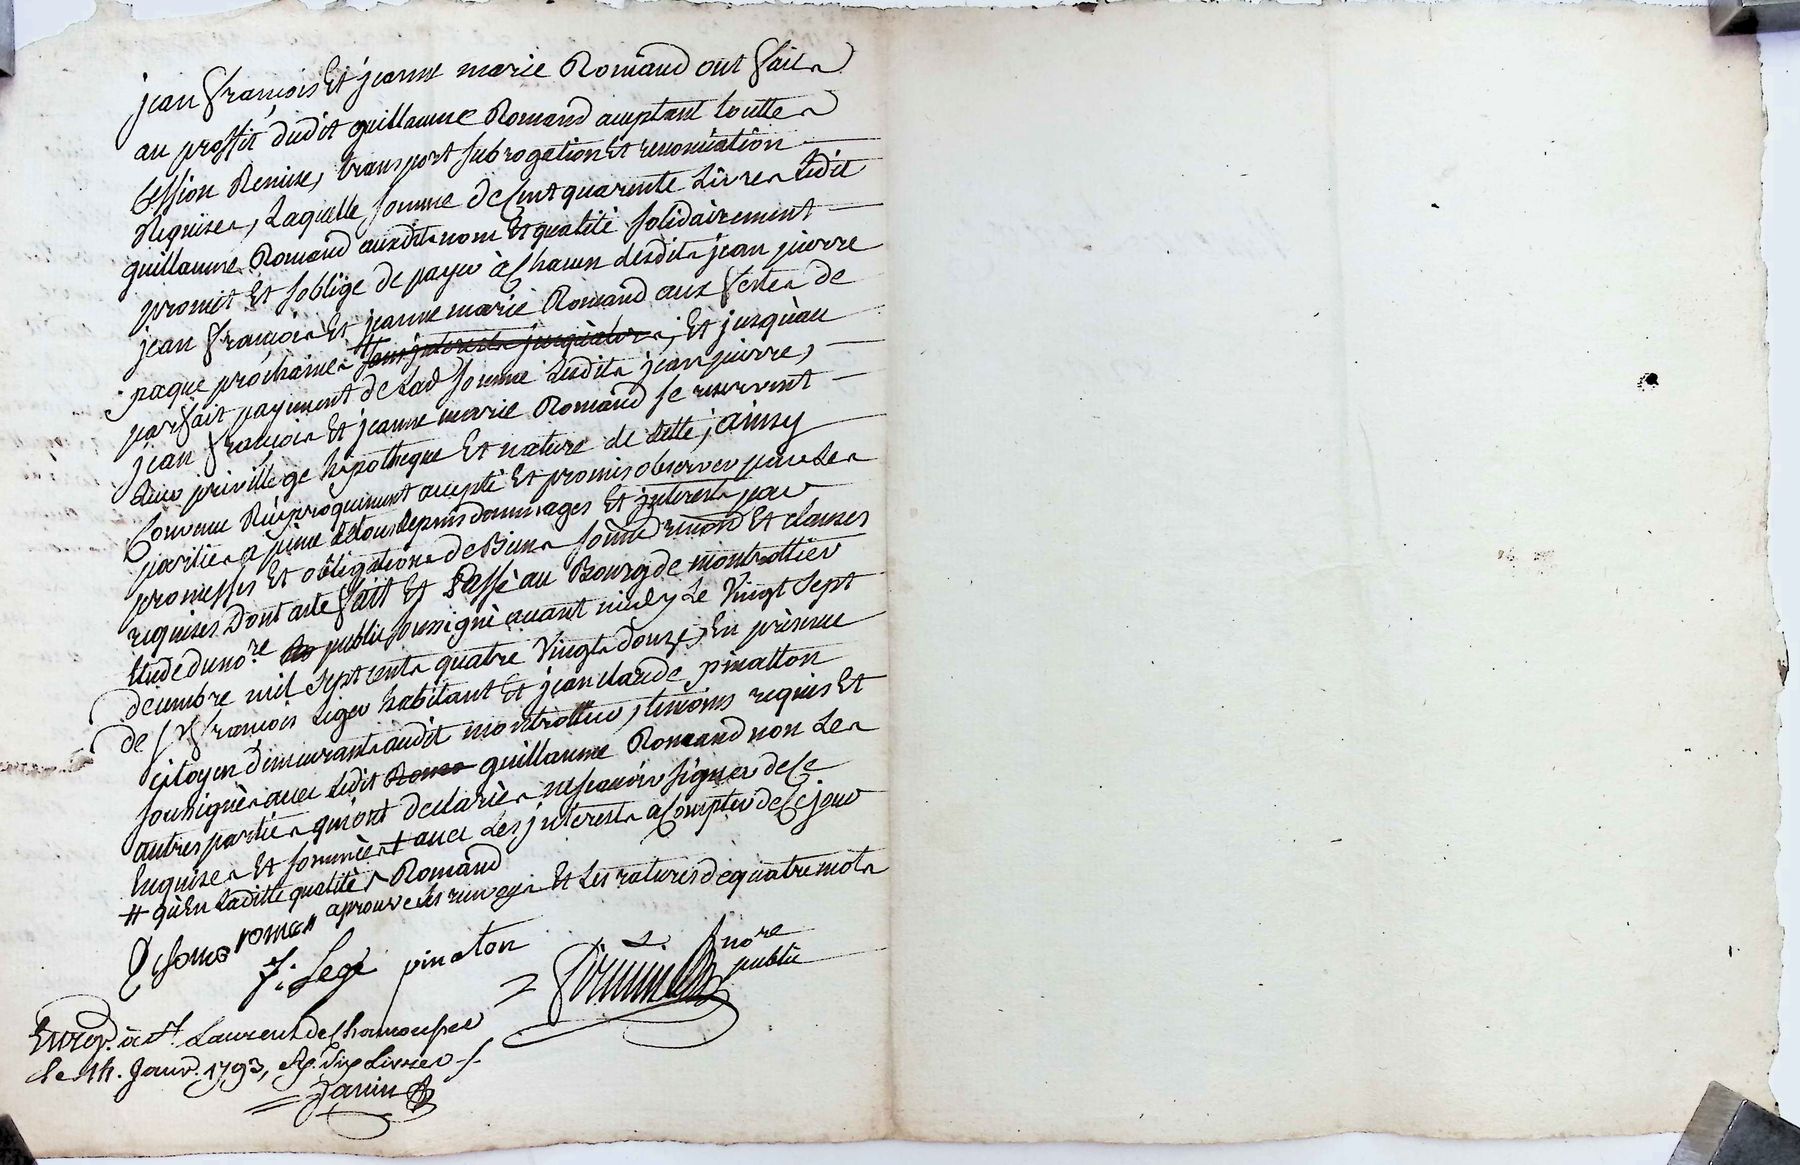 jean françois Et jeanne marie Romand ont fait
au proffit dudit guillaume Romand aceptant toutte
Cession Remise, transport subrogation Et renonciation
Requise, Laquelle somme de Cent quarente Livres Ledit
guillaume Romand auxdits nom Et qualité solidairement
promet Et soblige de payer à Chacun desdits jean pierre
jean françois Et jeanne marie Romand aux festes de
paque prochaines # sans interests jusqualors ; Et jusquàu
parfait payement de Lad somme Lesdits jean pierre,
jean françois Et jeanne marie Romand se reservent
Leur privillege hipotheque Et nature de dette ; ainsy
Convenu Reciproquement accepté Et promis observer par Les
parties a peine de tous depens dommages Et interests par
promesses Et obligations de Biens soumis renon Et clauses
requises Dont acte fait Et Passé au Bourg de montrottier
Etude du nore public soussigné avant midy Le Vingt sept
decembre mil sept cent quatre Vingt douze, En presence
de françois Leger habitant Et jean claude pinatton
Citoyen demeurants audit montrottier, temoins requis Et
soussignés avec Ledit guillaume Romand non Les
autres parties qui ont declarées ne scavoir signer de Ce
Enquises Et sommées + avec Les jnterests a Compter de Ce jour
# qu'En Laditte qualité Romand
aprouve Les renvoys Et Les ratures de quatre mots
f. Lege pinaton
nore
public
Enreg. à st Laurent de Chamousset
le 14. Janv. 1793, R. six Livres
Janin